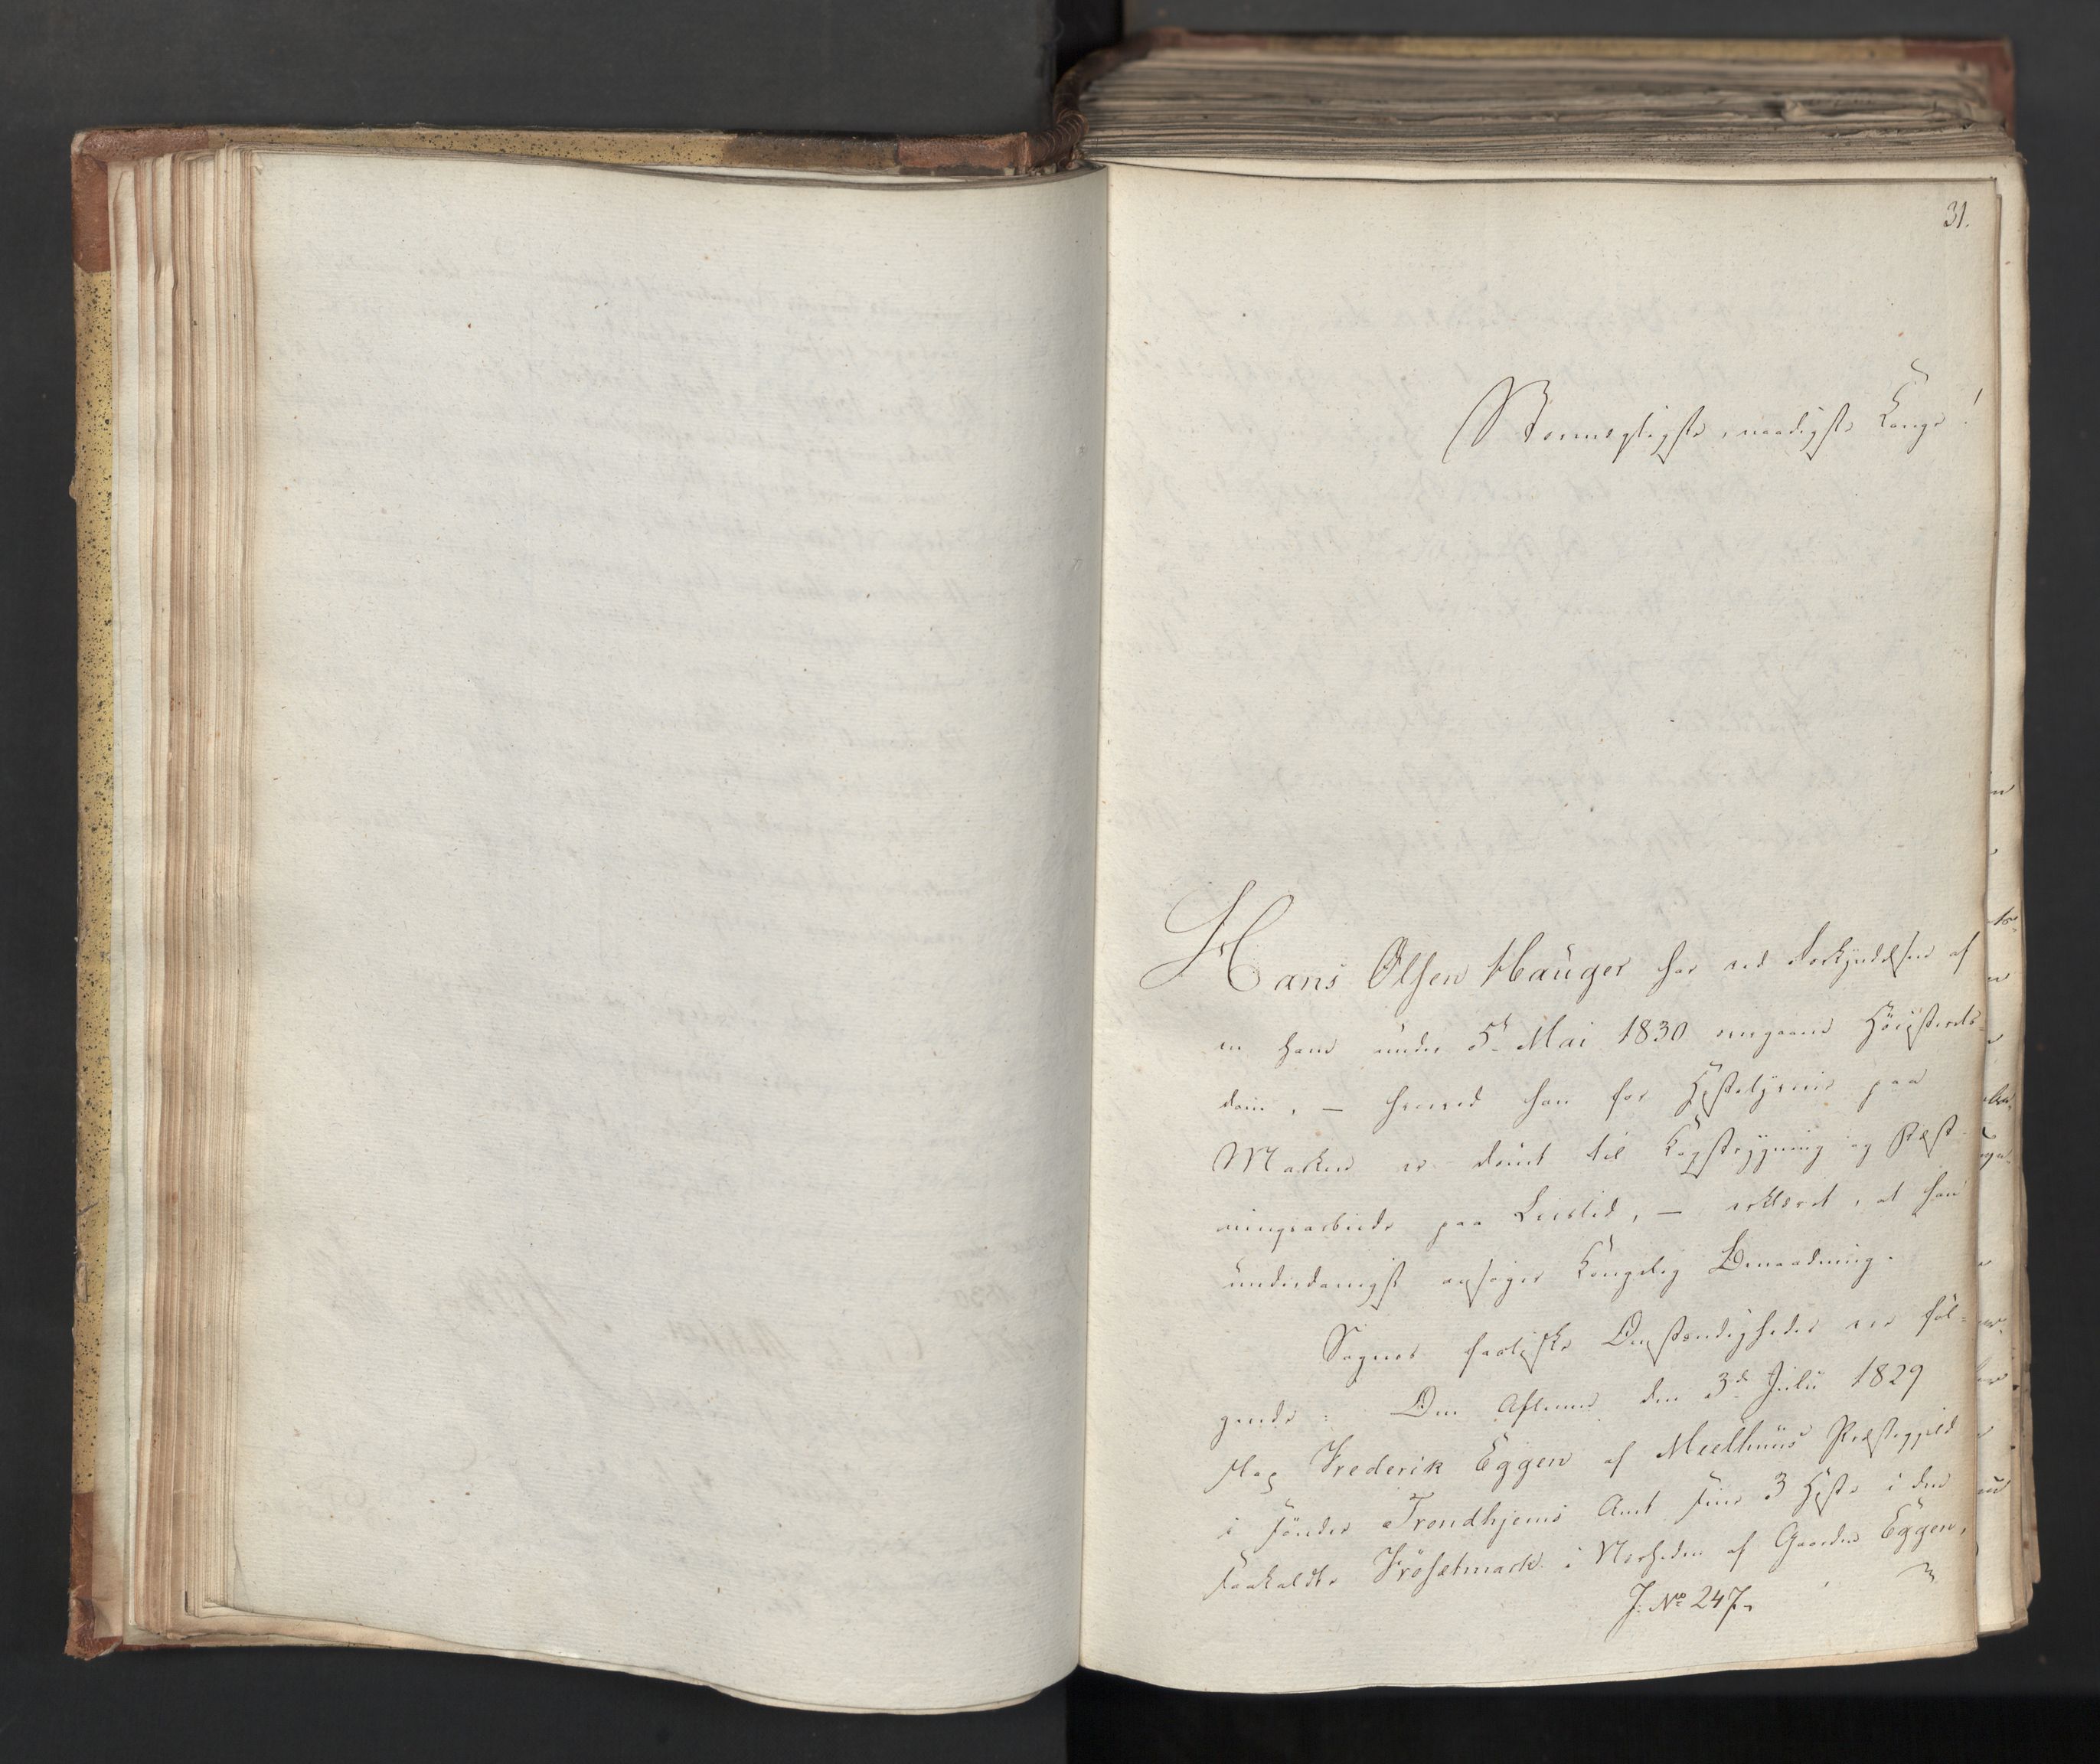 31.
Stormægtigste, naadigste Konge!
Hans Olsen Hauger har ved Forkyndelsen af
en ham under 5t Mai 1830 overgaaen Höiesterets-
dom, – hvorved han for Hestetyverie paa
Marken er dömt til Kagstrygning og Fæst-
ningsarbeide paa Livstid, – erklæret, at han
underdanigst ansöger Kongelig Benaadning.
Sagens factiske Omstændigheder ere föl-
gende: Om Aftenen den 3de Julii 1829
slap Frederik Eggen af Meelhuus Præstegjeld
i Söndre Trondhjems Amt sine 3 Heste i den
saakaldte Frösetmark i Nærheden af Gaarden Eggen,
J. No 247.